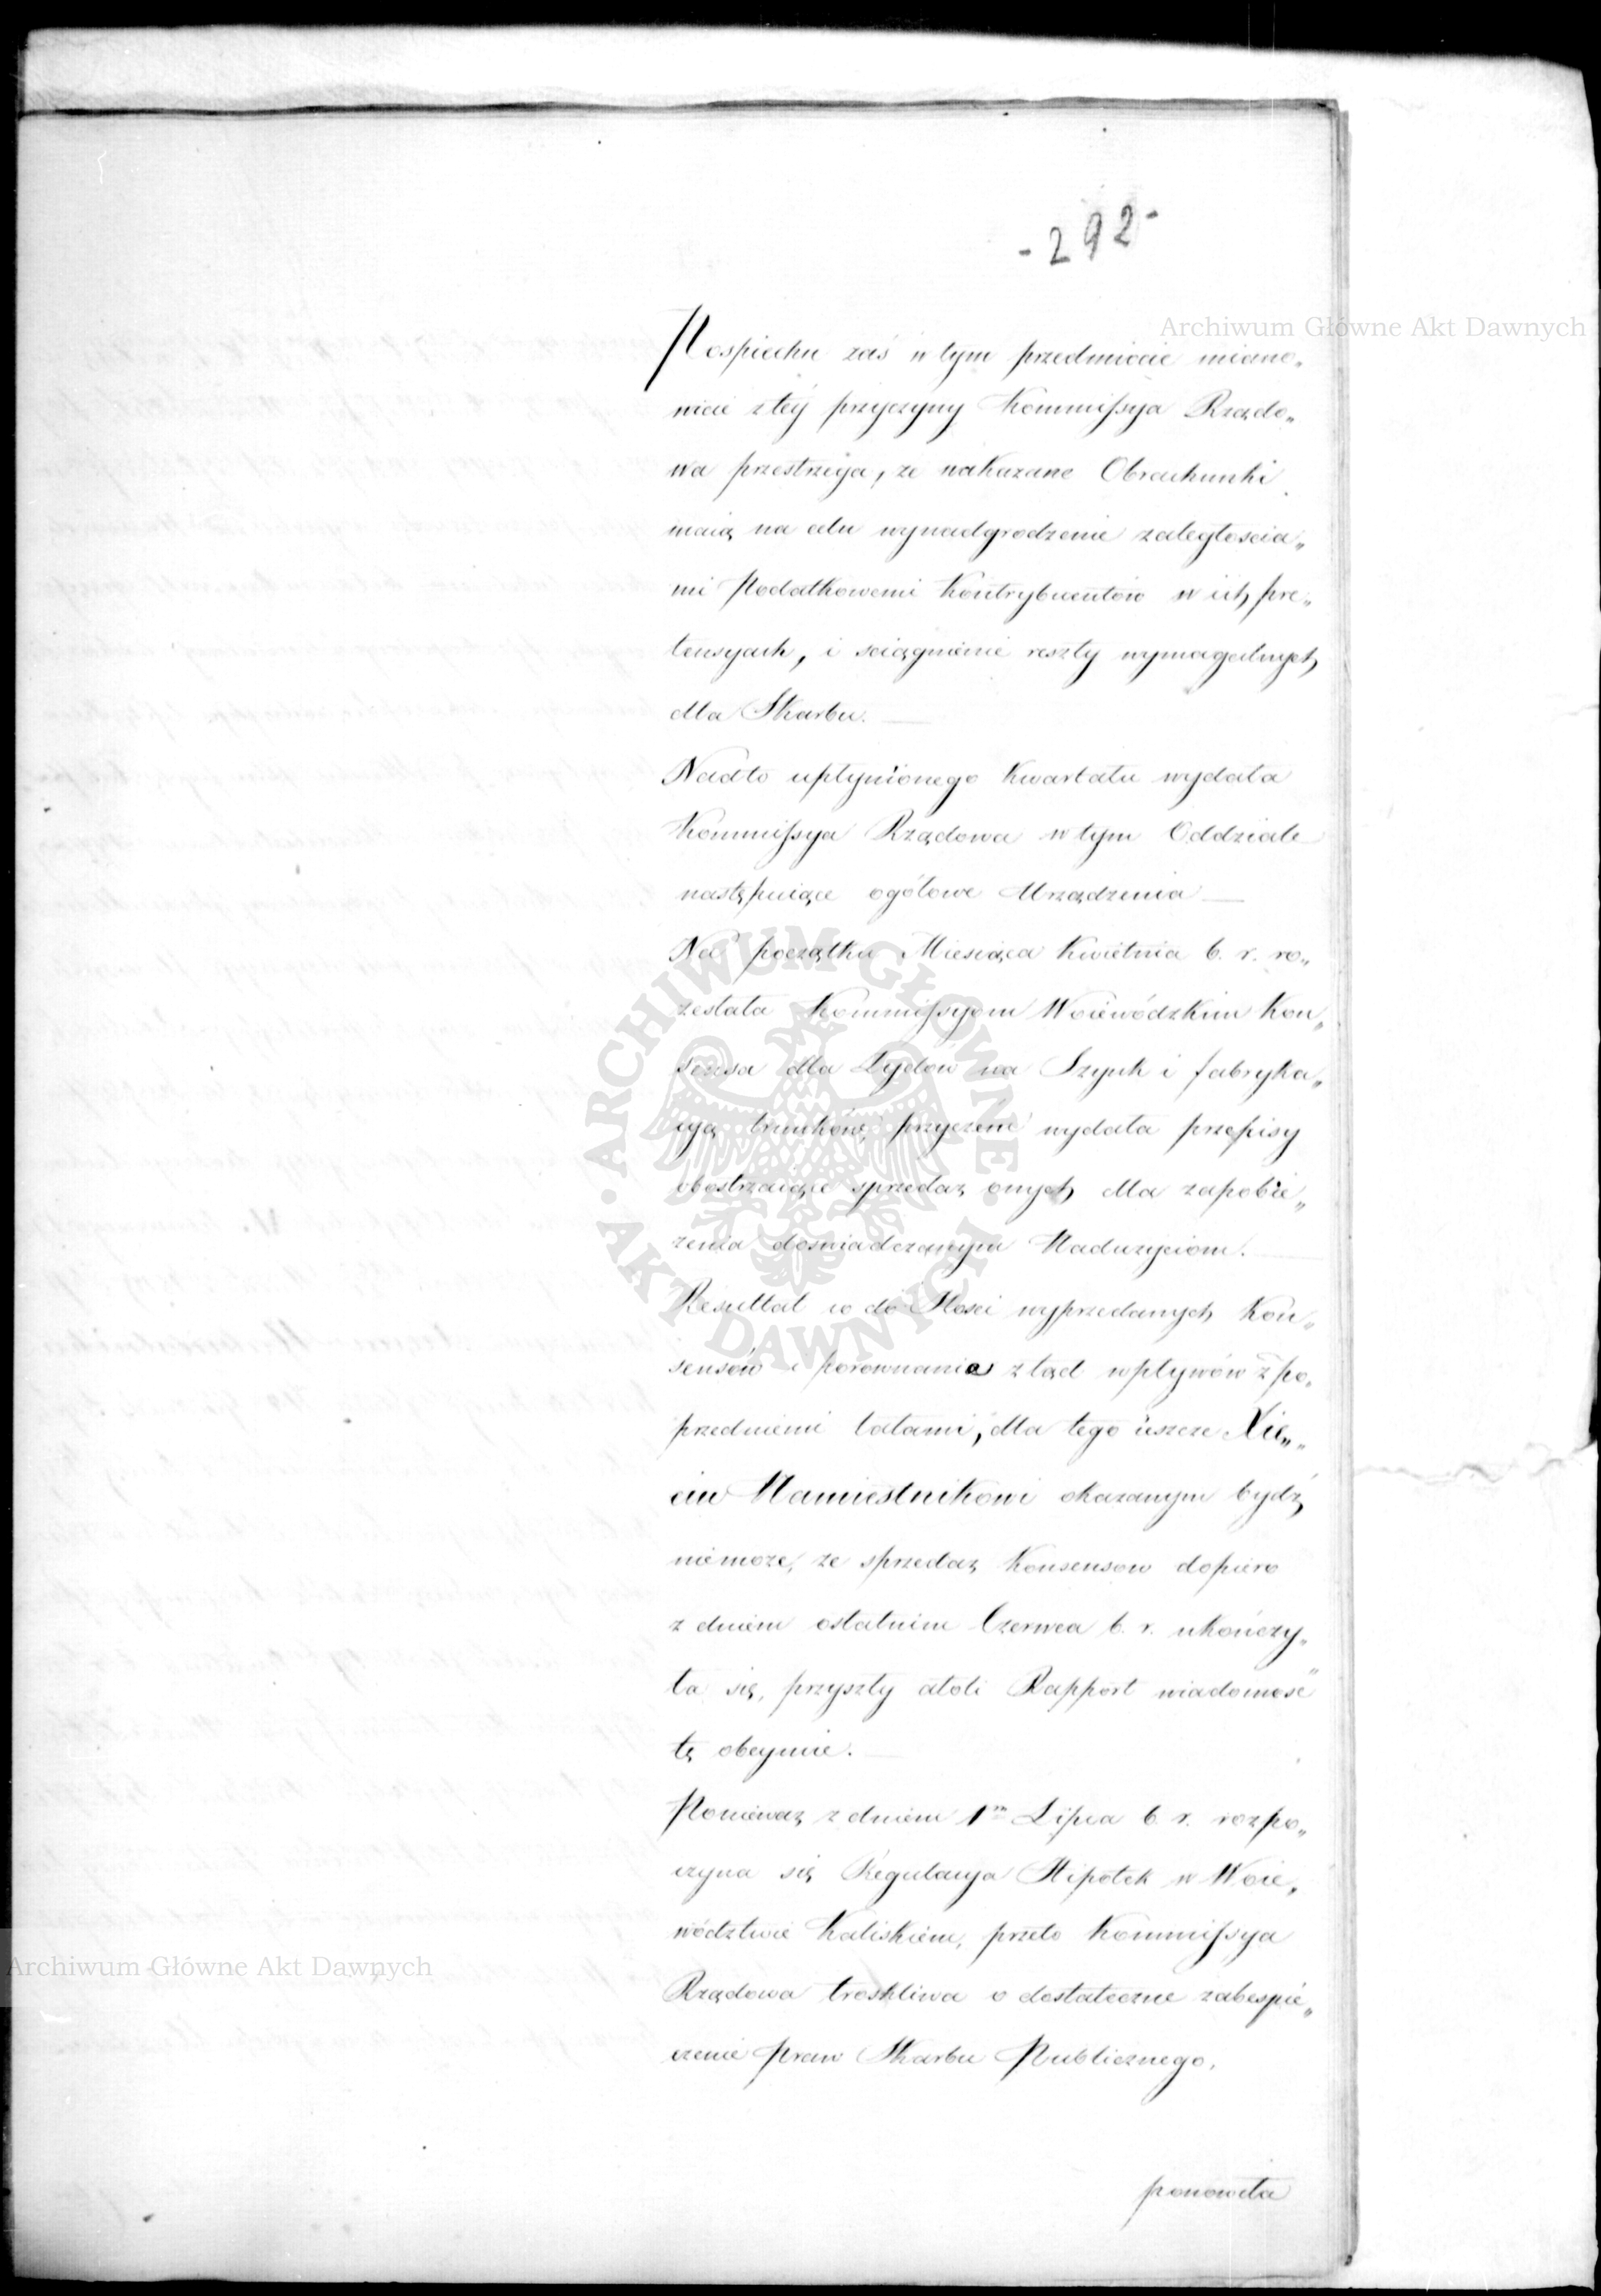 -292-
Archiwum Główne Akt Dawnych
Pospiechu zaś w tym przedmiocie miano„
wicie z téy przyczyny Kommissya Rządo„
wa przestrzega, że nakazane Obrachunki
maią na celu wynadgrodzenie zaległościa„
mi Podatkowemi Kontrybuentów w ich pre„
tensyach, i ściągnienie reszty wymagalnych
dla Skarbu.
Nadto upłynionego Kwartału wydała
Kommissya Rządowa w tym Oddziale
następuiące ogółowe Urządzenia
Na początku Miesiąca Kwietnia b. r. ro„
zesłała Kommissyom Woiewódzkim Kon„
sensa dla Żydów na Szynk i fabryka„
cyą trunków, przyczém wydała przepisy
obostrzaiące sprzedaż onych dla zapobie„
żenia doświadczanym Nadużyciom.
Resultat co do Ilości wyprzedanych Kon„
sensów i porównania ztąd wpływów z po„
przedniemi latami, dla tego ieszcze Xię„
ciu Namiestnikowi okazanym bydź
niemoże, że sprzedaż Konsensow dopiero
z dniem ostatnim Czerwca b. r. ukończy„
ła się, przyszły atoli Rapport wiadomość
tę obeymie.
Ponieważ z dniem 1m Lipca b. r. rozpo„
czyna się Regulacya Hipotek w Woie„
wództwie Kaliskiem, przeto Kommissya
Rządowa troskliwa o dostateczne zabespie„
czenie Praw Skarbu Publicznego,
ponowiła
ARCHIWUM GŁÓWNE AKT DAWNYCH
Archiwum Główne Akt Dawnych